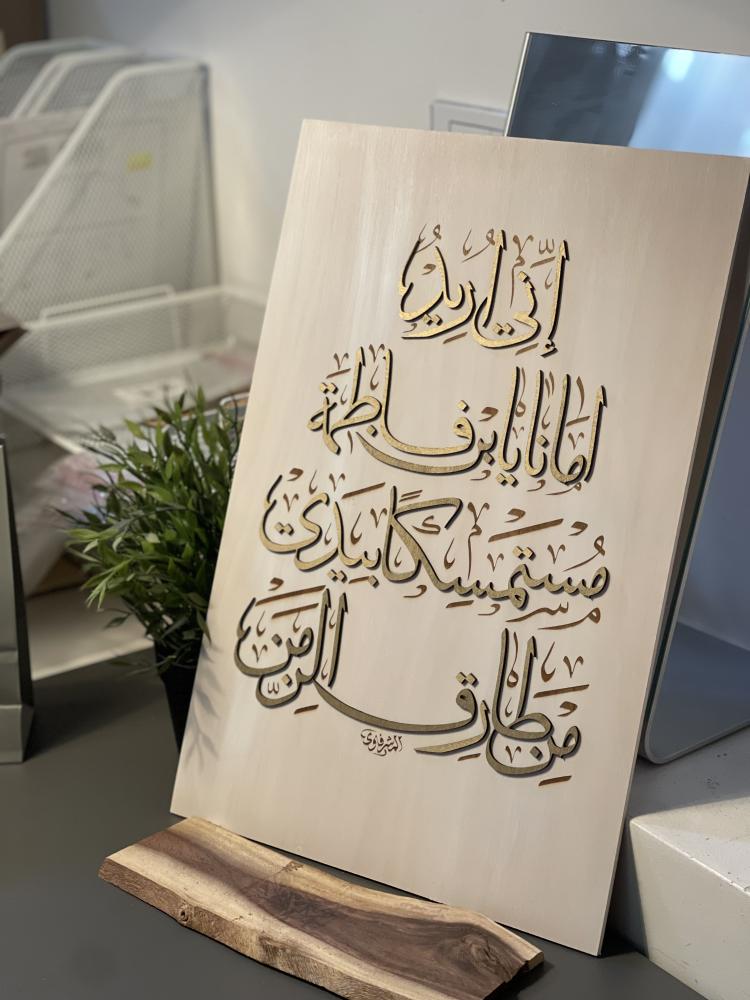 إنّي اريدُ
امانا يا ابن فاطمة
مُستمسِكًا بيدي
من طارق الزمن
المشرفاوي